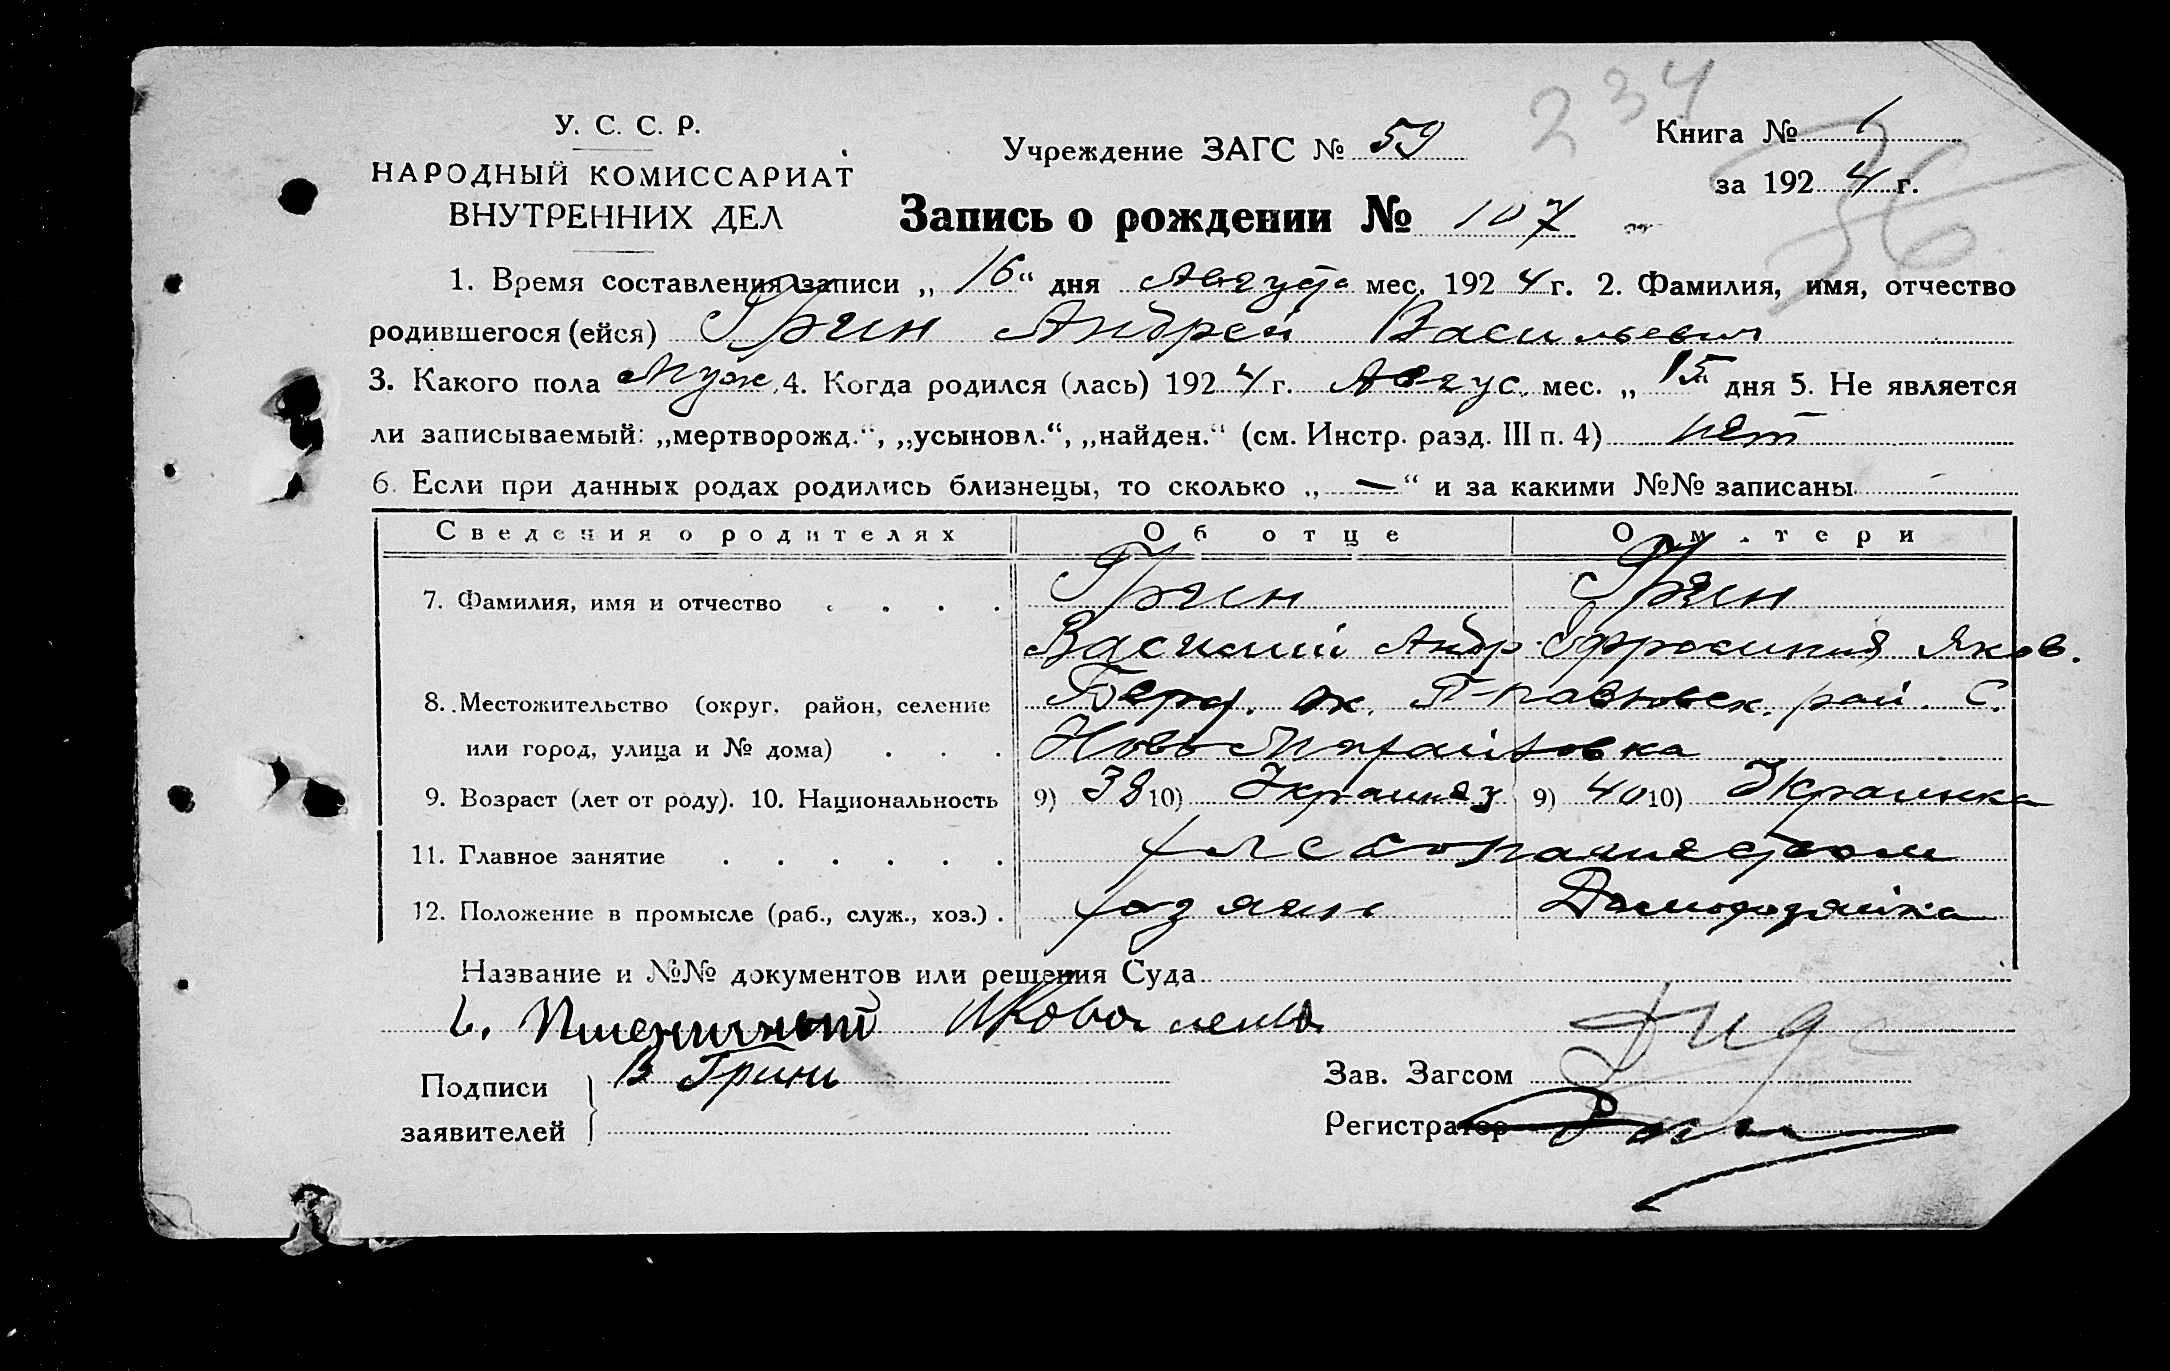 234
У. С. С. Р.
НАРОДНЫЙ КОМИССАРИАТ
ВНУТРЕННИХ ДЕЛ
Учреждение ЗАГС № 59
Книга № 1
36
за 1924 г.
Запись о рождении № 107
1. Время составления записи „16“ дня Августа мес. 1924 г. 2. Фамилия, имя, отчество
родившегося (ейся) Грин Андрей Васильевич
3. Какого пола Муж. 4. Когда родился (лась) 1924 г. Авгус. мес. „15 дня 5. Не является
ли записываемый: „мертворожд.“, „усыновл.“, „найден.“ (см. Инстр. разд. III п. 4) нет
6. Если при данных родах родились близнецы, то сколько „—“ и за какими №№ записаны
Сведения о родителях Об отце О матери
7. Фамилия, имя и отчество Грин Грин
Василий Андр. Ефросиния Яков.
8. Местожительство (округ, район, селение Берд. ок. рай. С.
или город, улица и № дома) Ново
9. Возраст (лет от роду). 10. Национальность 9) 38 10) Украинец 9) 40 10) Украинка
11. Главное занятие хлебопашеством
12. Положение в промысле (раб., служ., хоз.) хозяин Домохозяйка
Название и №№ документов или решения Суда
Пшеничный Коваленко
Подписи В Гринь
заявителей
Зав. Загсом
Регистратор